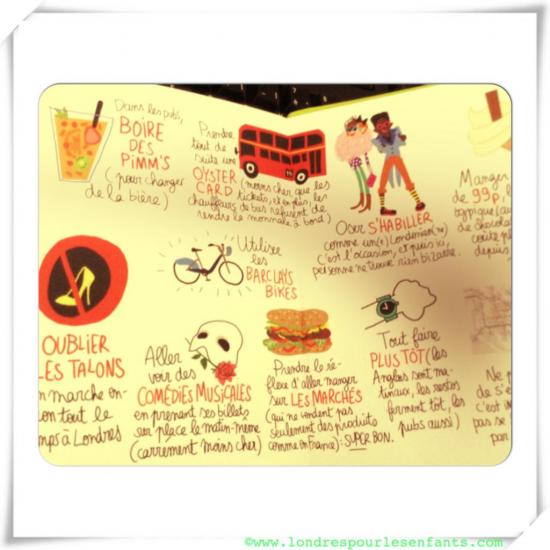 Dans les pubs,
BOIRE
DES
PIMM'S
(pour changer
de la bière)
Prendre
tout de
suite une
OYSTER
CARD (moins cher que les
tickets, et en plus, les
chauffeurs de bus refusent de
rendre la monnaie à bord)
Oser S'HABILLER
comme un(e) Londonien(ne)
c'est l'occasion, et puis ici,
personne ne trouve rien bizarre.
Manger
de 99p, l
typique (
de chocola
coûte pl
depuis
OUBLIER
LES TALONS
n marche en-
ion tout le
mps à Londres
Utiliser
les
BARCLAYS
BIKES
Aller
voir des
COMÉDIES MUSICALES
en prenant ses billets
sur place le matin-même
(carrément moins cher)
Prendre le ré-
flexe d'aller manger
sur LES MARCHÉS
(qui ne vendent pas
seulement des produits
comme en France): SUPER BON.
Tout faire
PLUS TÔT (les
Anglais sont ma-
tinaux, les restos
ferment tôt, les
pubs aussi)
Ne p
de s'é
c'est i
pas se
par
©www.londrespourlesenfants.com